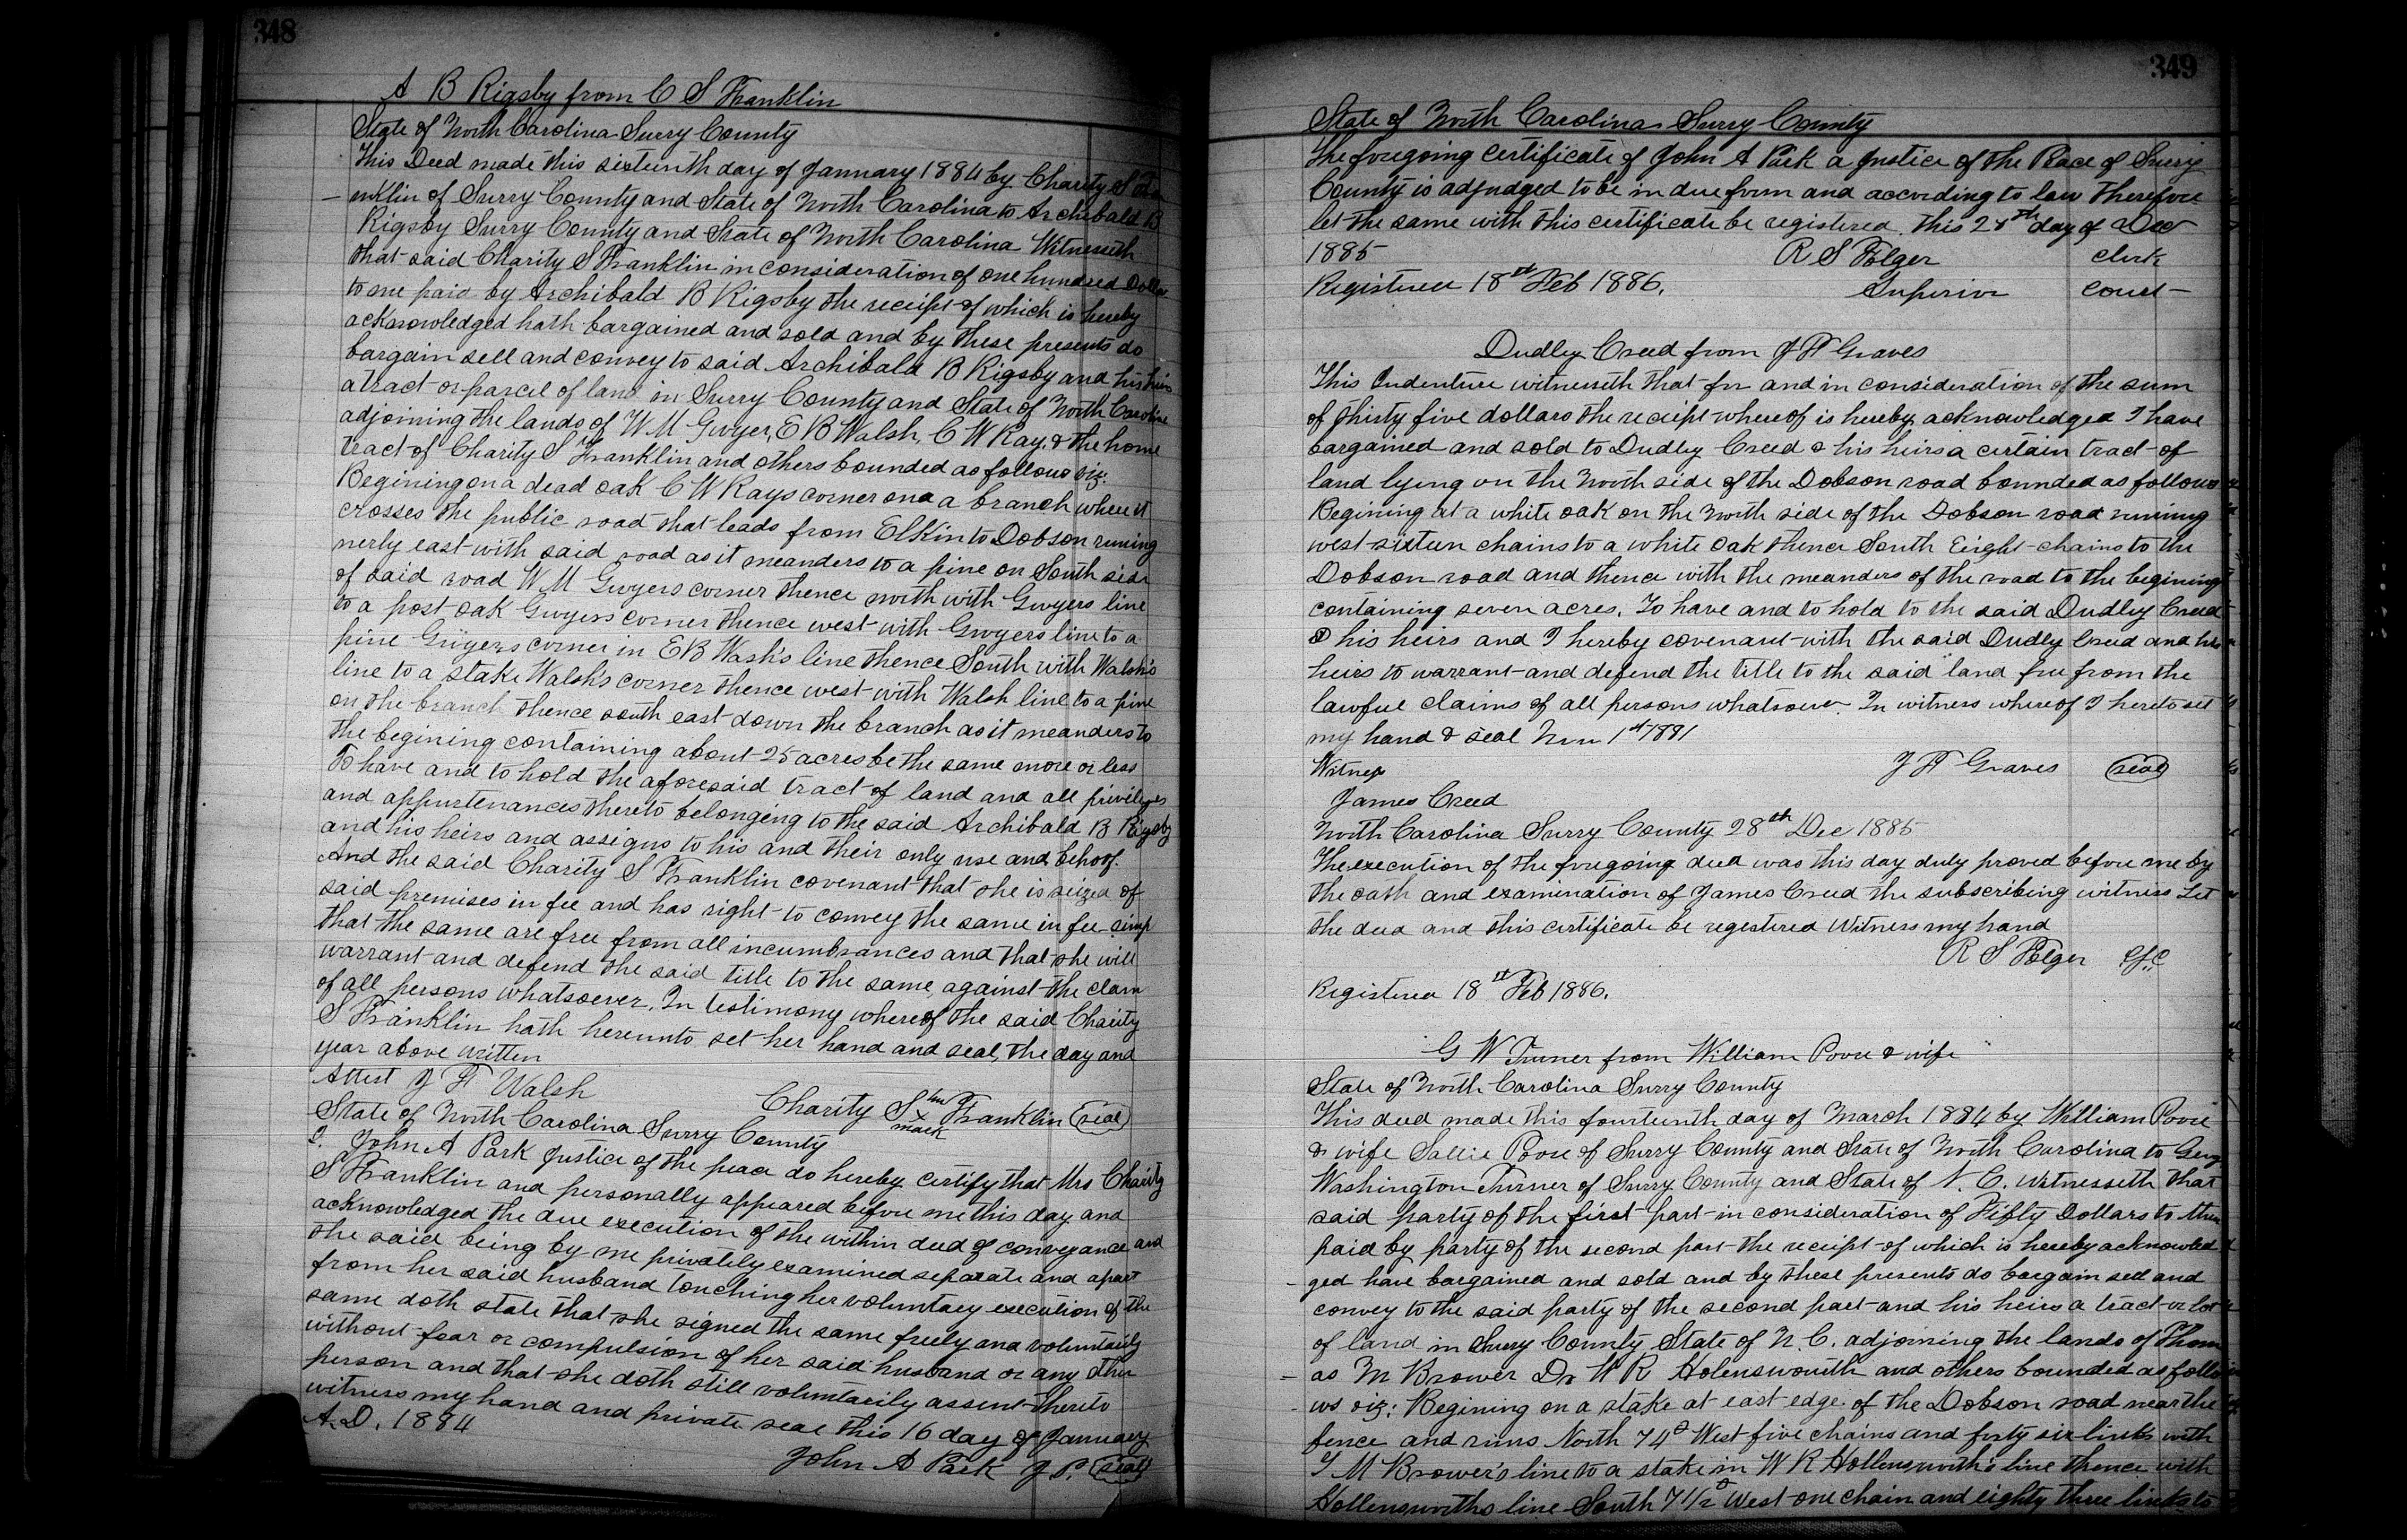 348
A B Rigsby from C S Franklin
State of North Carolina Surry County
This Deed made this sixteenth day of January 1884 by Charity S Fra
- nklin of Surry County and State of North Carolina to Archibald B
Rigsby Surry County and State of North Carolina Witnesseth
that said Charity S Franklin in consideration of one hundred Dollar
to me paid by Archibald B Rigsby the receipt of which is hereby
acknowledged hath bargained and sold and by these presents do
bargain sell and convey to said Archibald B Rigsby and his heirs
a tract or parcel of land in Surry County and State of North Carolina
adjoining the lands of W M Gwyer, E B Walsh, C W Ray, & the home
tract of Charity S Franklin and others bounded as follows viz:
Begining on a dead oak C W Rays corner on a a branch where it
crosses the public road that leads from Elkin to Dobson runing
nerly east with said road as it meanders to a pine on South side
of said road W M Gwyers corner thence north with Gwyers line
to a post oak Gwyers corner thence west with Gwyers line to a
pine Gwyers corner in E B Wash's line thence South with Walsh's
line to a stake Walsh's corner thence west with Walsh line to a pine
on the branch thence south east down the branch as it meanders to
the begining containing about 25 acres be the same more or less
To have and to hold the aforesaid tract of land and all privileges
and appurtenances thereto belonging to the said Archibald B Rigsby
and his heirs and assigns to his and their only use and behoof.
And the said Charity S Franklin covenant that she is seized of
said premises in fee and has right to convey the same in fee simp
that the same are free from all incumbrances and that she will
warrant and defend the said title to the same against the claim
of all persons whatsoever. In testimony whereof the said Charity
S Franklin hath hereunto set her hand and seal, the day and
year above written
Attest J F Walsh
Charity S her x mark Franklin (seal)
State of North Carolina Surry County
I. John A Park Justice of the peace do hereby certify that Mrs Charity
S Franklin and personally appeared before me this day and
acknowledged the due execution of the within deed of conveyance and
she said being by me privately examined separate and apart
from her said husband touching her voluntary execution of the
same doth state that she signed the same freely and voluntarily
without fear or compulsion of her said husband or any other
person and that she doth still voluntarily assent thereto
witness my hand and private seal this 16 day of January
A.D. 1884
John A Park J P. (seal)
349
State of North Carolina Surry County
The foregoing certificate of John A Park a Justice of the Peace of Surry
County is adjudged to be in due form and according to law Therefore
let the same with this certificate be registered. This 28th day of Dec
1885 R S Folger clerk
Registered 18st Feb 1886. Superior court
Dudley Creed from J F Graves
This Indenture witnesseth that for and in consideration of the sum
of thirty five dollars the receipt whereof is hereby acknowledged I have
bargained and sold to Dudley Creed & his heirs a certain tract of
land lying on the North side of the Dobson road bounded as follows
Begining at a white oak on the North side of the Dobson road runing
west sixteen chains to a white oak thence South Eight chains to the
Dobson road and thence with the meanders of the road to the begining
containing seven acres. To have and to hold to the said Dudley Creed
& his heirs and I hereby covenant with the said Dudly Creed and his
heirs to warrant and defend the title to the said land free from the
lawful claims of all persons whatsoever. In witness whereof I hereto set
my hand & seal Nov 1st 1881
Witness J F Graves (seal)
James Creed
North Carolina Surry County 28th Dec 1885
The execution of the foregoing deed was this day duly proved before me by
the oath and examination of James Creed the subscribing witness Let
the deed and this certificate be registered Witness my hand
R S Folger C.S.C
Registered 18st Feb 1886.
G W Turner from William Poore & wife
State of North Carolina Surry County
This deed made this fourteenth day of March 1884 by William Poore
& wife Sallie Poore of Surry County and State of North Carolina to Geog
Washington Turner of Surry County and State of N. C. witnesseth that
said party of the first part in consideration of Fifty Dollars to them
paid by party of the second part the receipt of which is hereby acknowled
- ged have bargained and sold and by these presents do bargain sell and
convey to the said party of the second part and his heirs a tract or lot
of land in Surry County State of N. C. adjoining the lands of Thom
- as M Brower Dr W R Holensworth and others bounded as follo
- ws viz: Begining on a stake at east edge of the Dobson road near the
fence and runs North 74° West five chains and forty six links with
T M Brower's line to a stake in W R Hollensworth's line thence with
Hollensworths line South 7 1/2° West one chain and eighty three links to